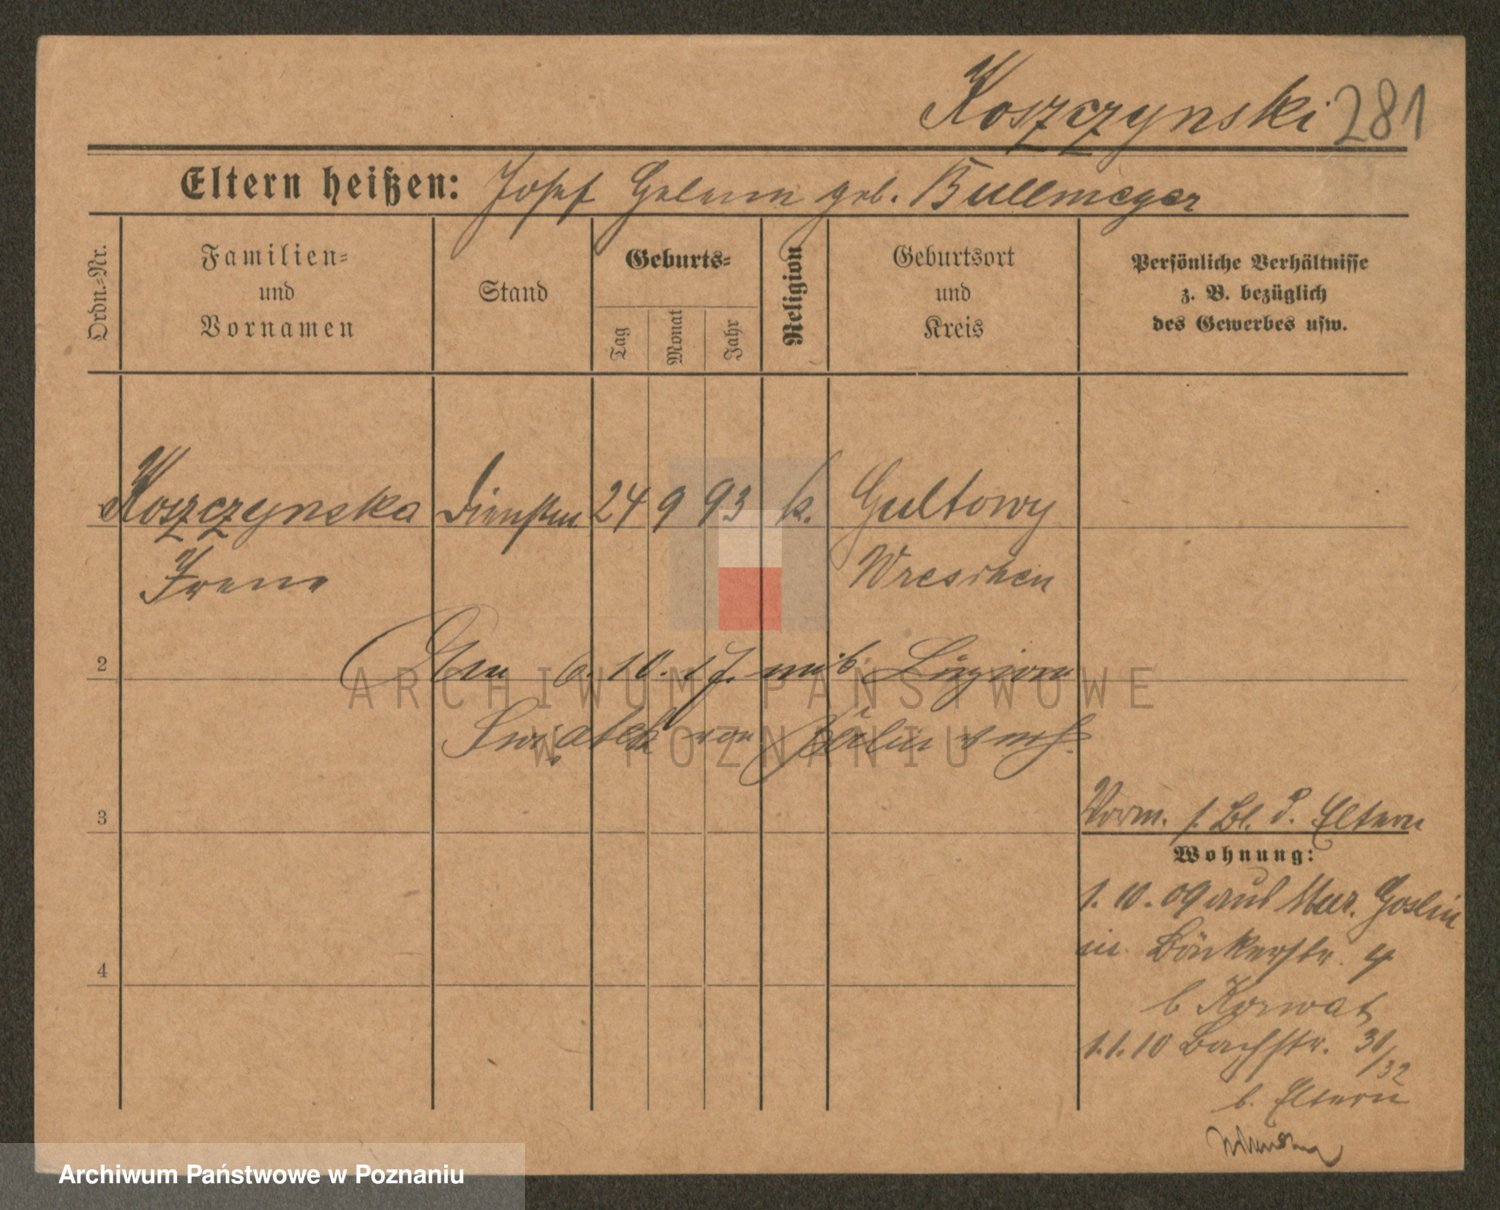 Koszczynski 281
Eltern heißen: Josef Helene geb. Bullmeyer
Ordn.=Nr.
Familien= und Vornamen
Stand
Geburts=
Tag
Monat
Jahr
Religion
Geburtsort und Kreis
Persönliche Verhältnisse z. B. bezüglich des Gewerbes usw.
Koszczynska 24 9 93 k. Gultowy
Irene Wreschen
2 6. 10. 17. mit
Swiątek verh.
3 Vorm. s. Bl. d. Eltern
Wohnung:
1. 10. 09 aus Mur. Goslin
in Bäckerstr. 4
4
b
1. 1. 10 Bachstr. 31/32
b. Eltern
ARCHIWUM PAŃSTWOWE
W POZNANIU
Archiwum Państwowe w Poznaniu